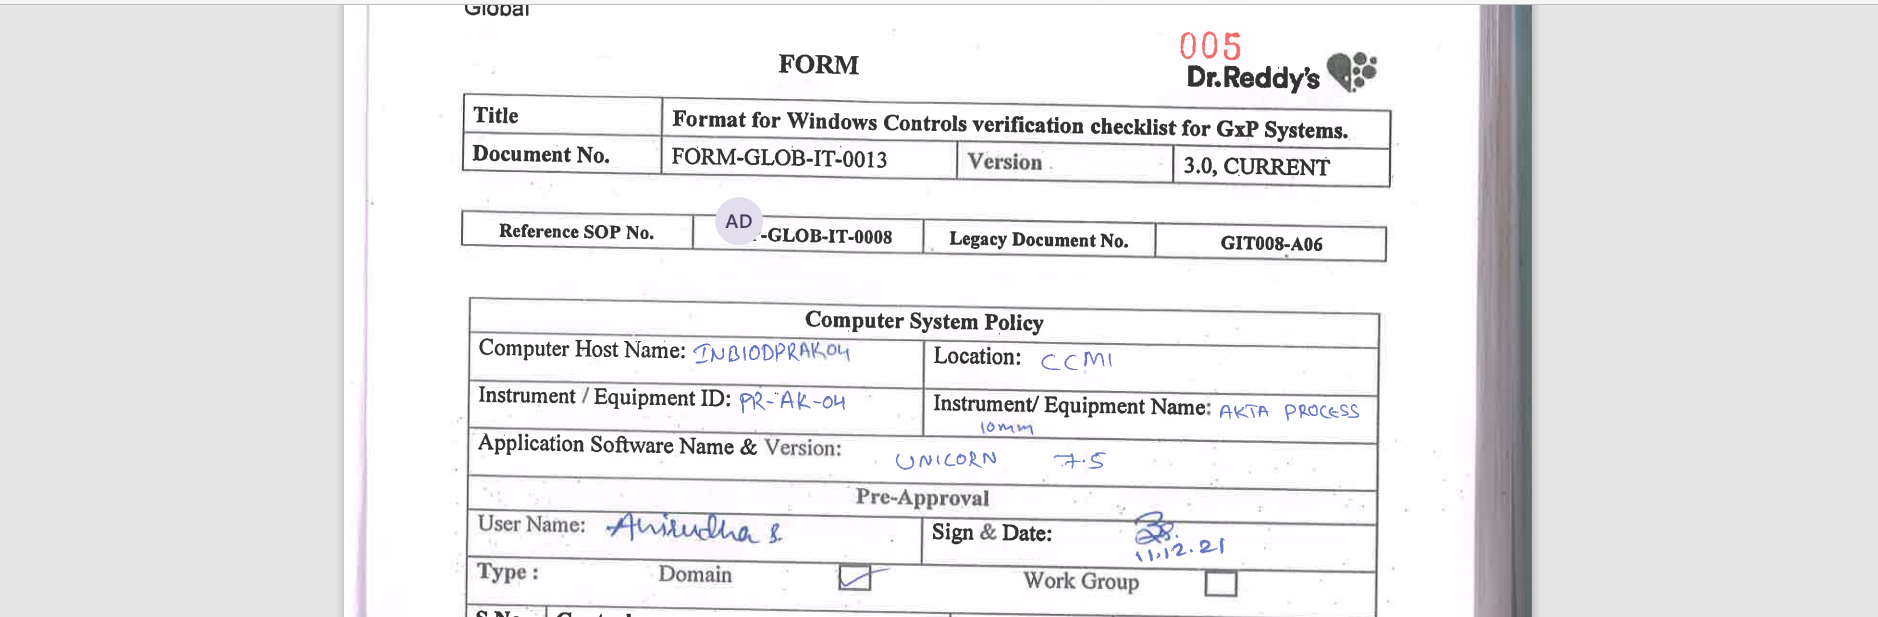 Global
005
FORM
Dr.Reddy's
Title Format for Windows Controls verification checklist for GxP Systems.
Document No. FORM-GLOB-IT-0013 Version 3.0, CURRENT
AD
Reference SOP No. -GLOB-IT-0008 Legacy Document No. GIT008-A06
Computer System Policy
Computer Host Name: INBIODPRAK04 Location: CCM1
Instrument / Equipment ID: PR-AK-04 Instrument/ Equipment Name: AKTA PROCESS
10mm
Application Software Name & Version: UNICORN 7.5
Pre-Approval
User Name: Anirudha S. Sign & Date:
11.12.21
Type : Domain Work Group